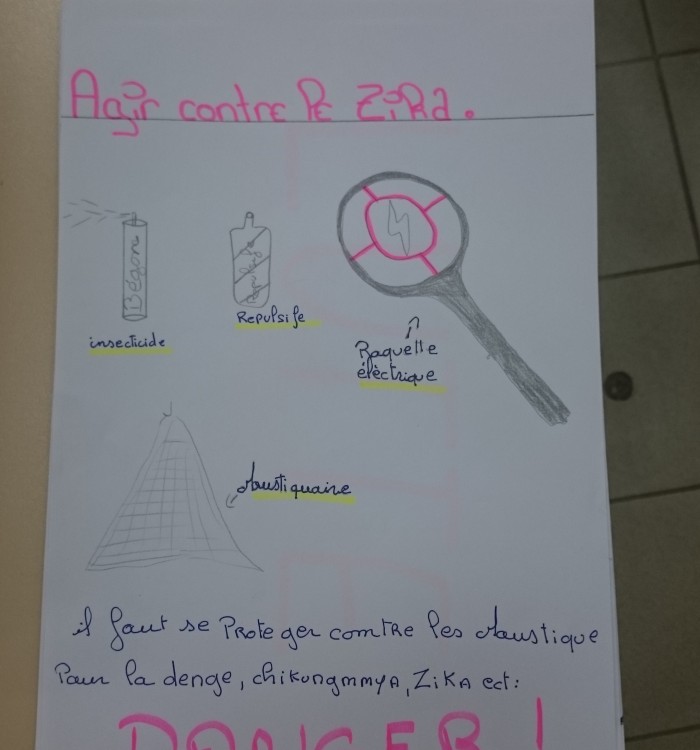 Agir contre le ZiKa.
Bégone
Repulsife
insecticide
Repulsife
Raquette
éléctrique
Moustiquaire
il faut se Proteger comtre les Moustique
Pour la denge, chikungmmyA, ZiKA ect:
DANGER !